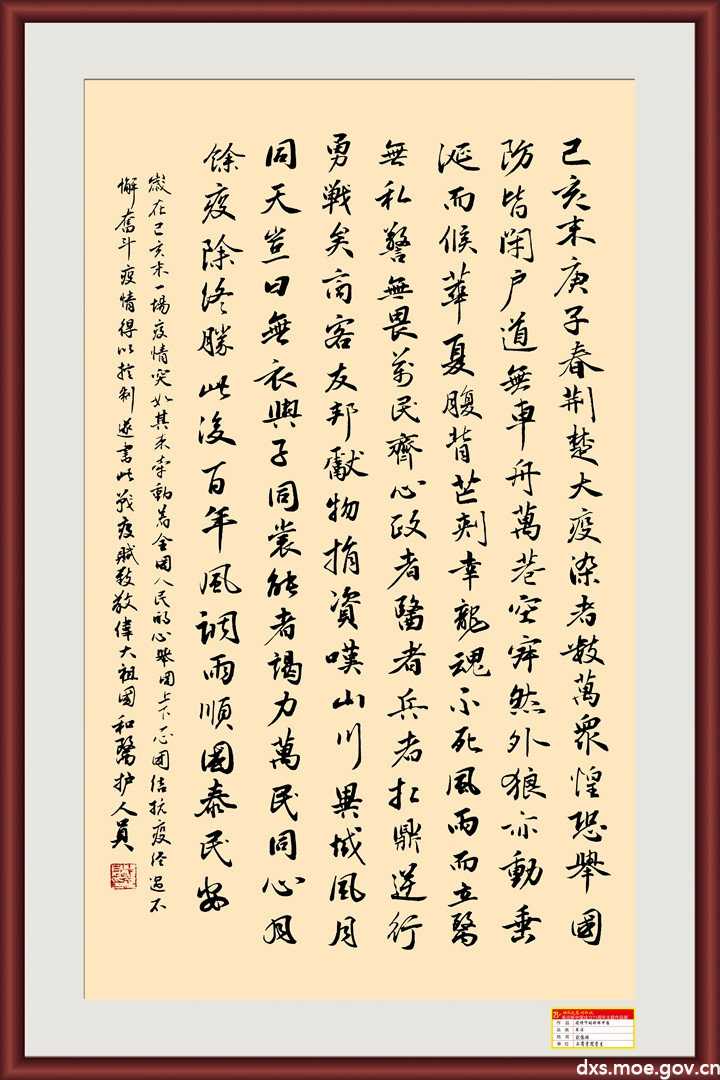 己亥末庚子春荆楚大疫染者數萬眾惶恐舉國
防皆閉户道無車舟萬巷空寂然外狼亦動垂
涎而候華夏腹背芒刺幸龍魂不死風雨而立醫
無私警無畏萬民齊心政者醫者兵者扛鼎逆行
勇戰矣商客友邦獻物捐資嘆山川異域風月
同天豈曰無衣與子同裳能者竭力萬民同心月
餘疫除終勝此後百年風調雨順國泰民安
歲在己亥末一場疫情突如其來牽動着全國人民的心舉國上下一心團结抗疫终過不
懈奮斗疫情得以控制遂書此戰疫賦致敬偉大祖國和醫护人員
作 品
品 類
書法
姓 名
單 位
dxs.moe.gov.cn